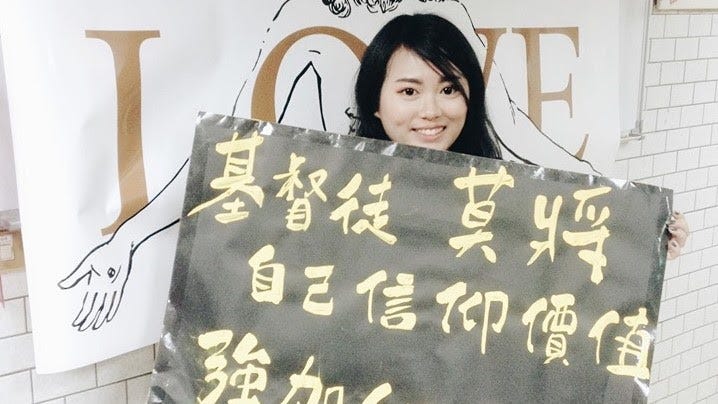 LOVE
基督徒 莫將
自己信仰價值
強加